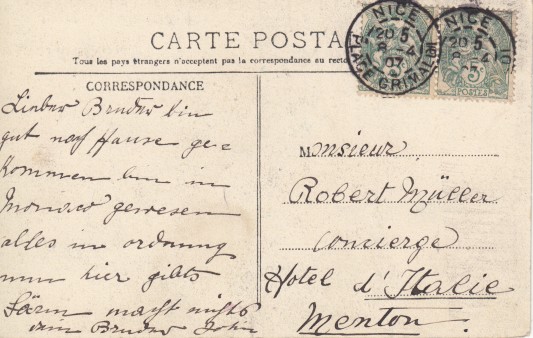 CARTE POSTA
Tous les pays étrangers n'acceptent pas la correspondance au recto
CORRESPONDANCE
Lieber Bruder bin
gut nach Hause ge=
kommen bin in
Monaco gewesen
alles in ordnung
nun hier gibts
Lärm macht nichts
dein Bruder John
Monsieur
Robert Müller
Concierge
Hotel d'Italie
Menton
NICE
20 5
8-4
07
PLACE GRIMALDI
NICE
20 5
8-4
POSTES